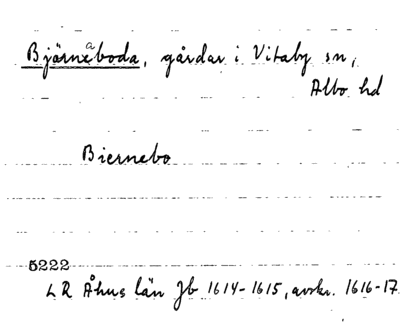 Björnaboda, gårdar i Vitaby sn,
Albo hd
Biernebo
5222
LR Åhus län Jb 1614-1615, avskr. 1616-17